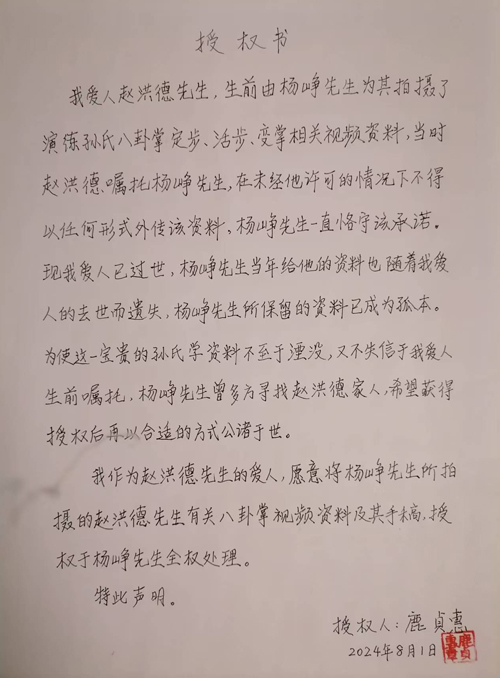 授权书
我爱人赵洪德先生，生前由杨峥先生为其拍摄了
演练孙氏八卦掌定步、活步、变掌相关视频资料，当时
赵洪德嘱托杨峥先生，在未经他许可的情况下不得
以任何形式外传该资料，杨峥先生一直恪守该承诺。
现我爱人已过世，杨峥先生当年给他的资料也随着我爱
人的去世而遗失，杨峥先生所保留的资料已成为孤本。
为使这一宝贵的孙氏学资料不至于湮没，又不失信于我爱人
生前嘱托，杨峥先生曾多方寻找赵洪德家人，希望获得
授权后再以合适的方式公诸于世。
我作为赵洪德先生的爱人，愿意将杨峥先生所拍
摄的赵洪德先生有关八卦掌视频资料及其手稿，授
权于杨峥先生全权处理。
特此声明。
授权人：鹿贞惠
2024年8月1日